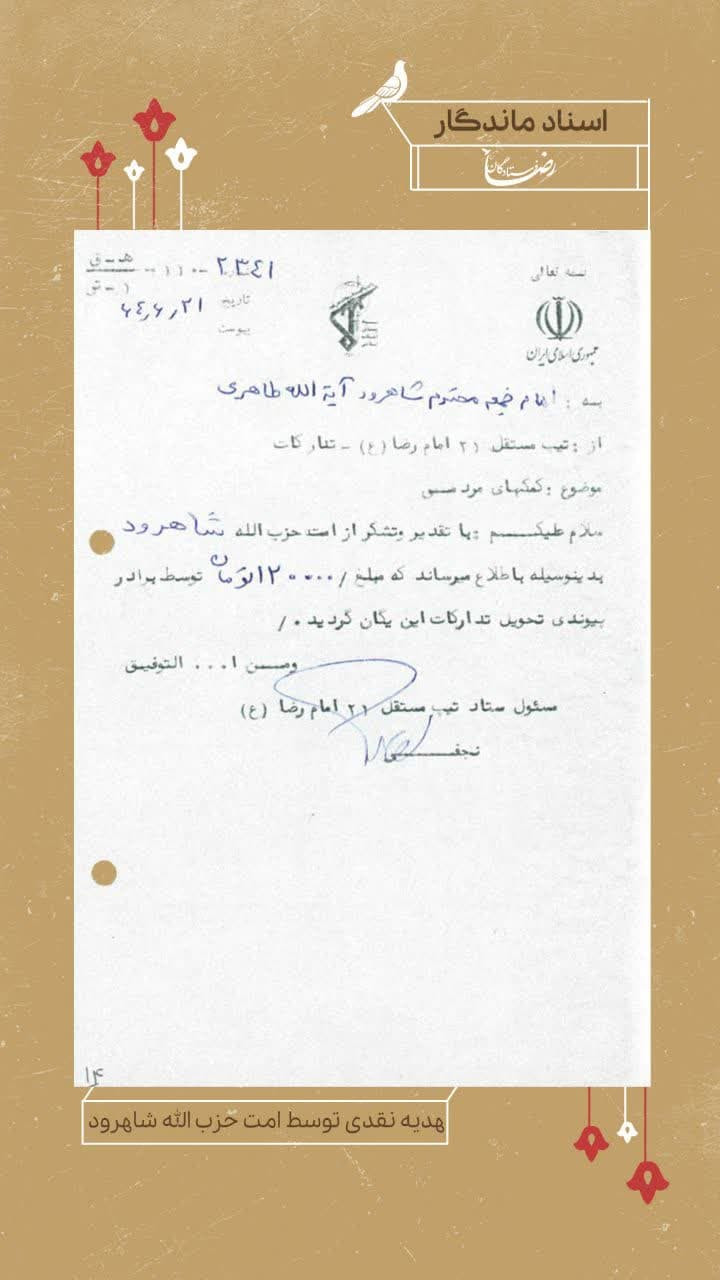 اسناد ماندگار
فرستادگان رضا
بسمه تعالی
جمهوری اسلامی ایران
۲۳۴۱ - ۱۱۰ - هـ - ق
۱ - ش
تاریخ ۶۴٫۶٫۲۱
پیوست
بسه : امام جمعه محترم شاهرود آیة الله طاهری
از : تیپ مستقل ۲۱ امام رضا (ع) ـ تدارکات
موضوع : کمکهای مردمی
سلام علیکم : با تقدیر وتشکر از امت حزب الله شاهرود
بدینوسیله باطلاع میرساند که مبلغ /۱۲۰۰۰۰ تومان توسط برادر
پیوندی تحویل تدارکات این یگان گردید . /
ومن ا... التوفیق
مسئول ستاد تیپ مستقل ۲۱ امام رضا (ع)
نجفی
۱۴
هدیه نقدی توسط امت حزب الله شاهرود